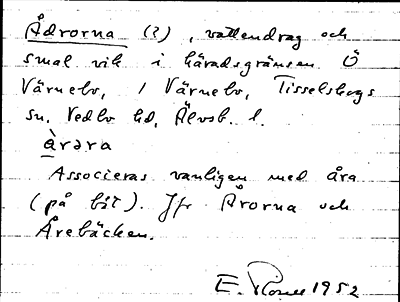 Ådrorna (?), vattendrag och
smal vik i häradsgränsen Ö
Värnebo, 1 Värnebo, Tisselskogs
sn, Vedbo hd, Älvsb. l.
àrəra
Associeras vanligen med åra
(på båt). Jfr Årorna och
Årebäcken.
E. 1952